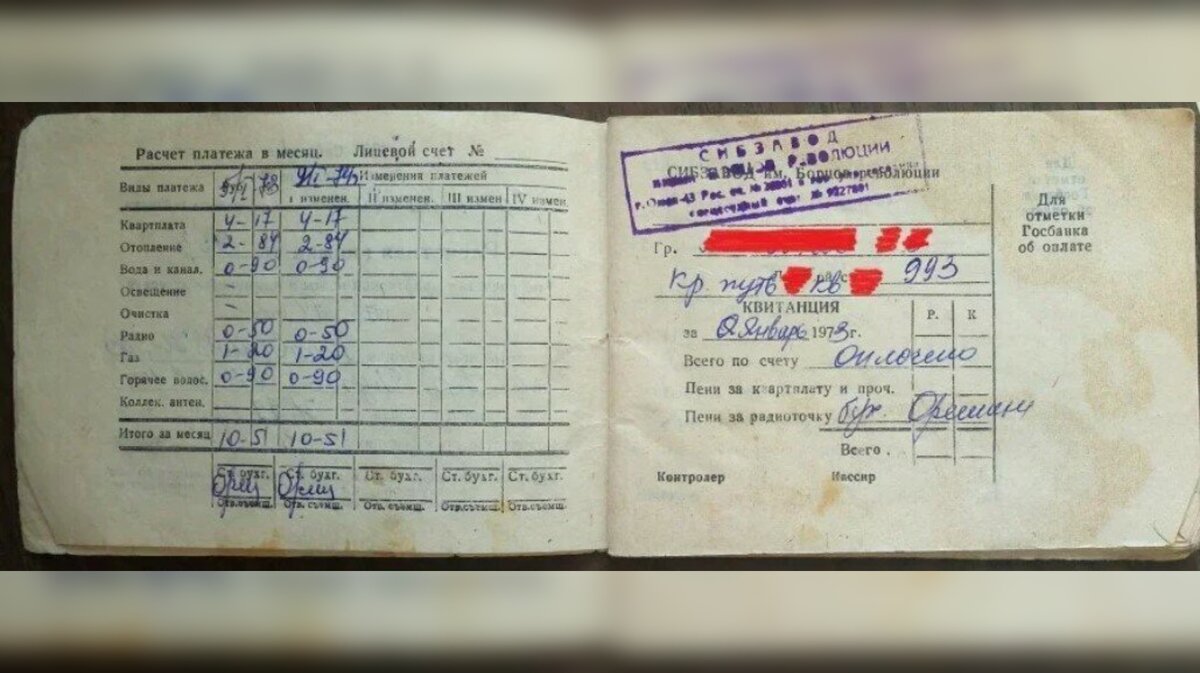 Расчет платежа в месяц. Лицевой счет №
Виды платежа Изменения платежей
I изменен. II изменен. III измен IV измен.
Квартплата 4-17 4-17
Отопление 2-84 2-84
Вода и канал. 0-90 0-90
Освещение –
Очистка –
Радио 0-50 0-50
Газ 1-20 1-20
Горячее водос. 0-90 0-90
Коллек. антен.
Итого за месяц 10-51 10-51
Ст. бухг. Ст. бухг. Ст. бухг. Ст. бухг. Ст. бухг.
Отв.съемщ. Отв.съемщ. Отв.съемщ. Отв.съемщ. Отв.съемщ.
СИБЗАВОД
СИБЗАВОД им. Борцов революции
Гр.
Кр путь кв 993
КВИТАНЦИЯ Р. К
за Январь 1973г.
Всего по счету оплочено
Пени за квартплату и проч.
Пени за радиоточку бух.
Всего .
Контролер Кассир
Для
отметки
Госбанка
об оплате